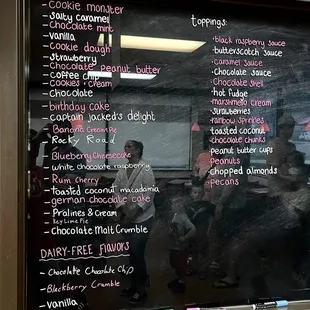 - Cookie monster
- salty caramel
- Chocolate mint
- vanilla
- Cookie dough
- Strawberry
- Chocolate peanut butter
- coffee chip
- cookies + cream
- Chocolate
- birthday cake
- captain jacked's delight
- Banana Cream Pie
- Rocky Road
- Blueberry Cheesecake
- white chocolate raspberry
- Rum Cherry
- toasted coconut macadamia
- german chocolate cake
- Pralines & Cream
- Key Lime Pie
- Chocolate Malt Crumble
DAIRY-FREE Flavors
- Chocolate Chocolate Chip
- Blackberry Crumble
- Vanilla
toppings:
- black raspberry sauce
- butterscotch sauce
- caramel sauce
- chocolate sauce
- chocolate shell
- hot fudge
- marshmello cream
- strawberries
- rainbow sprinkles
- toasted coconut
- chocolate chunks
- peanut butter cups
- peanuts
- chopped almonds
- pecans